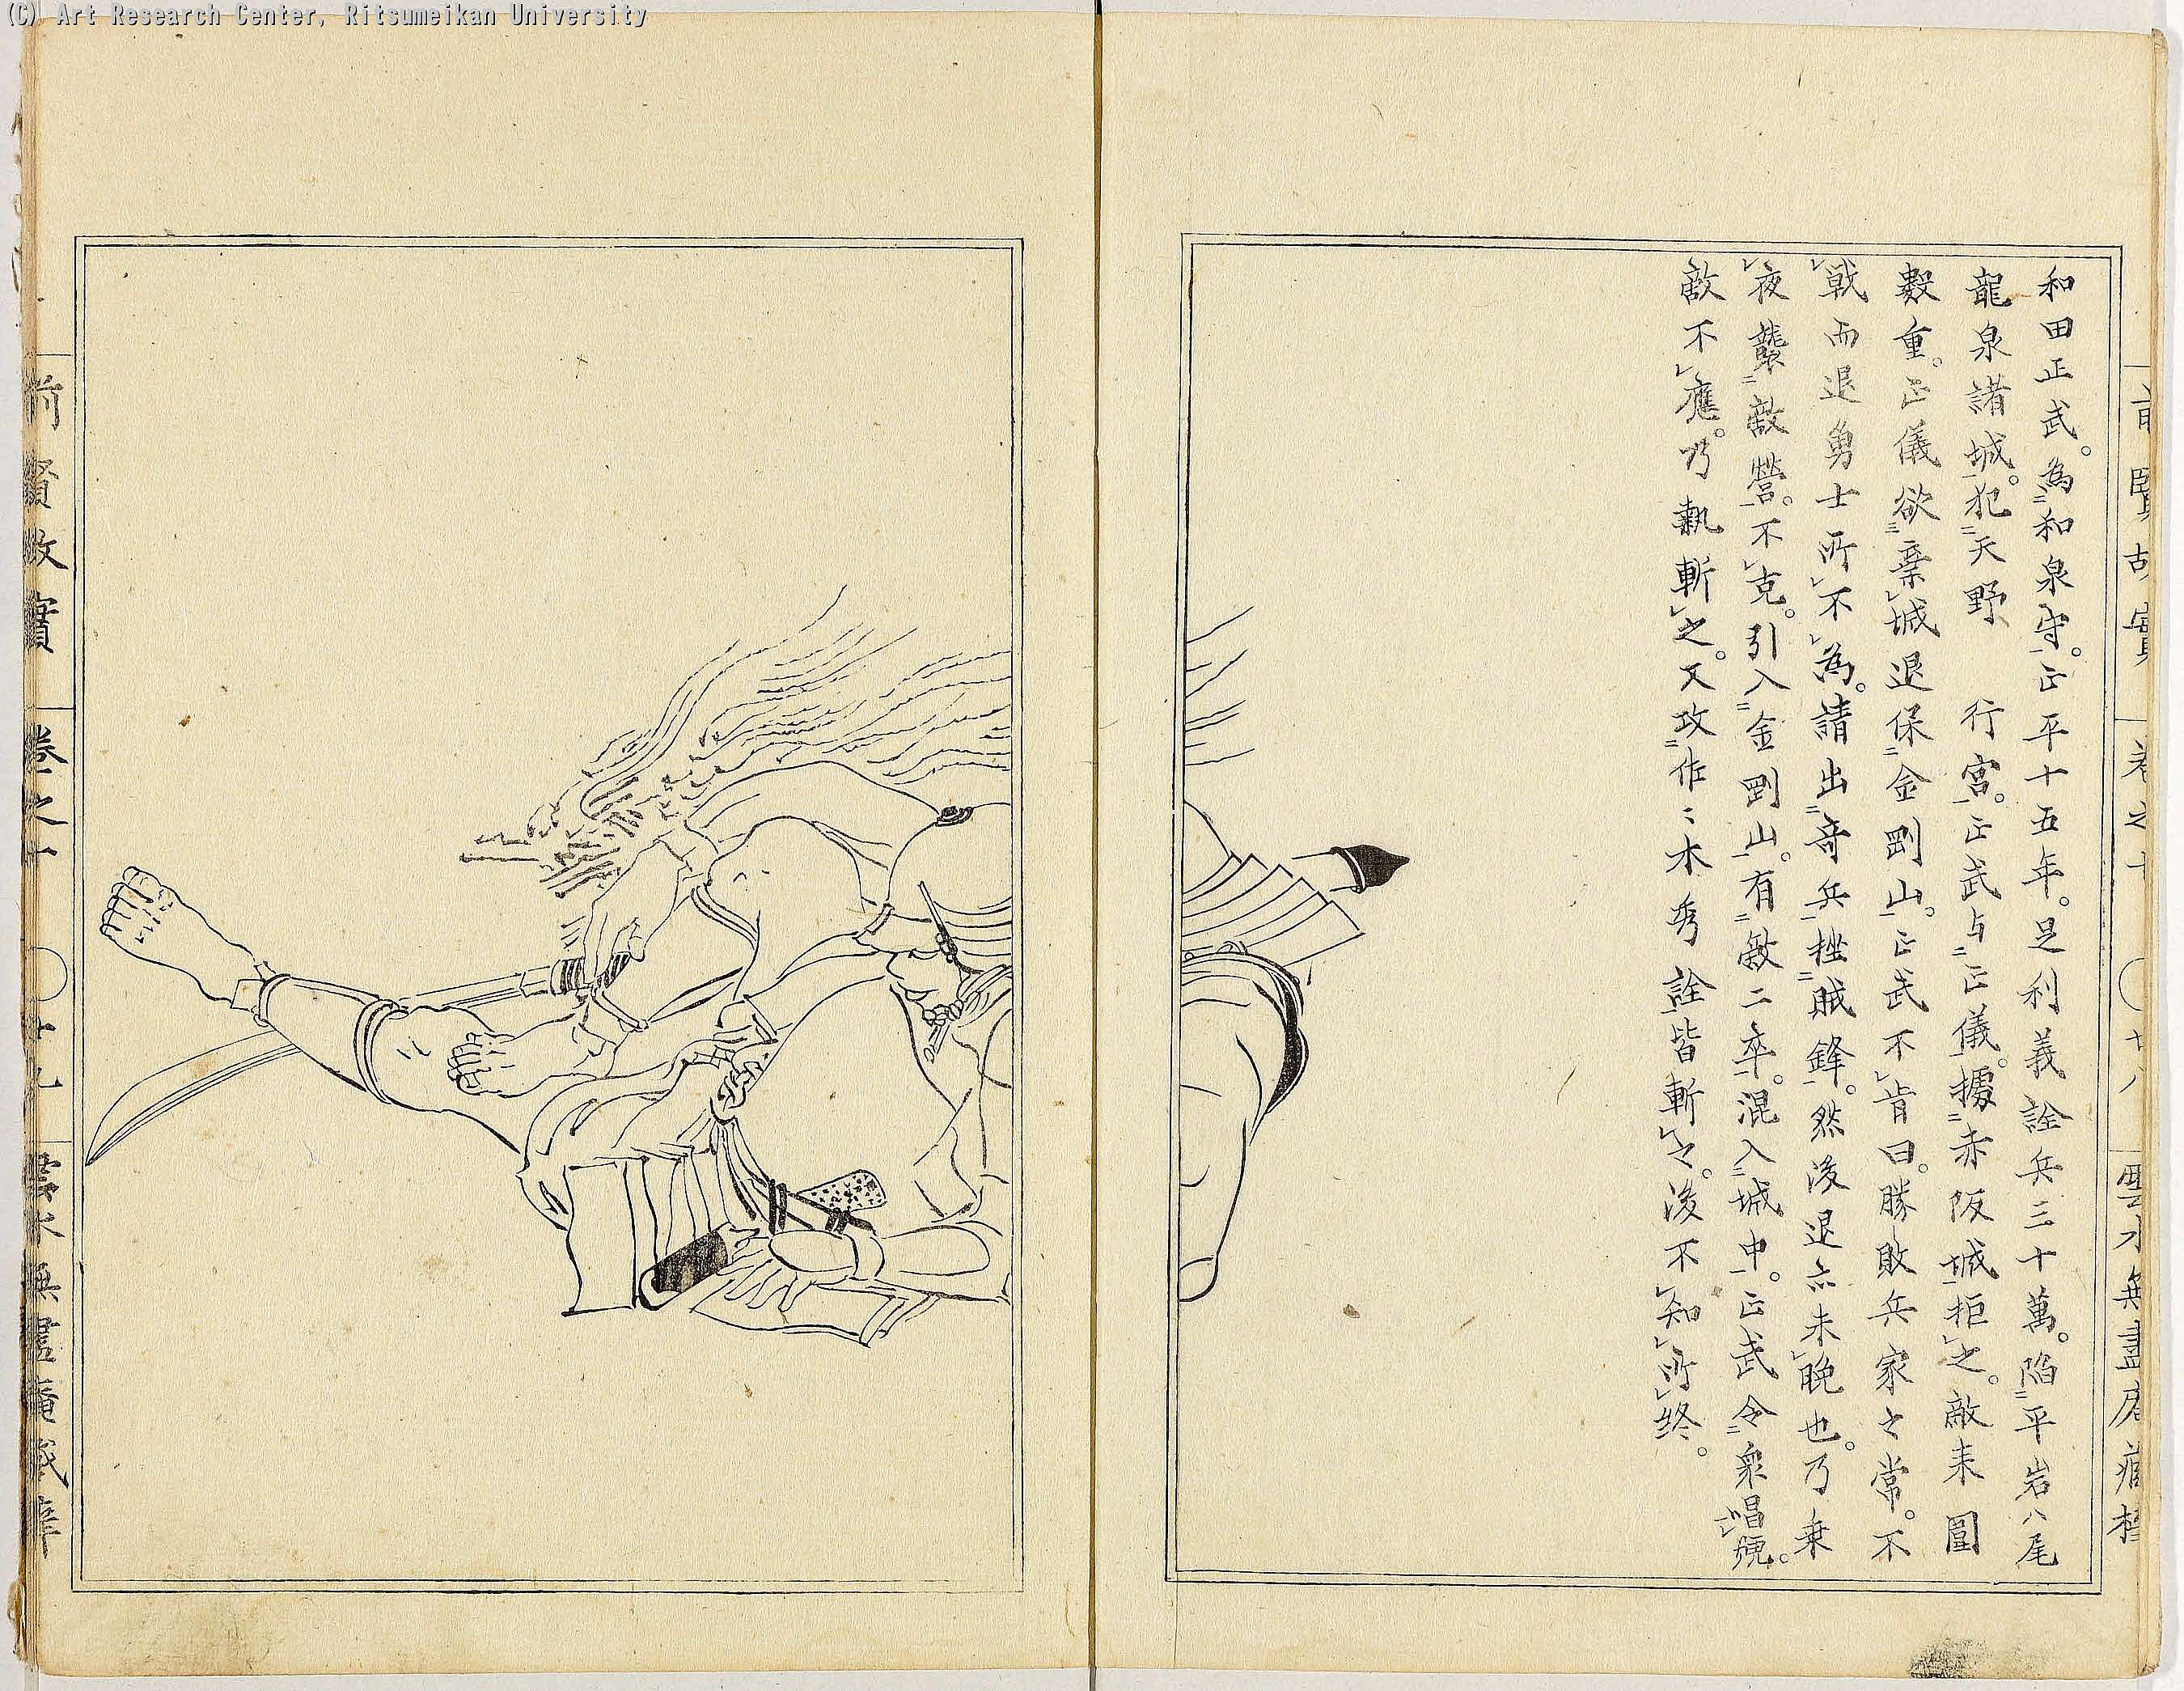 (C) Art Research Center, Ritsumeikan University
前賢故實 卷之十 〇廿八 雲水無盡庵藏梓
和田正武。為和泉守。正平十五年。足利義詮兵三十萬。陷平岩八尾
龍泉諸城。犯天野 行宮。正武与正儀。據赤阪城拒之。敵来圍
數重。正儀欲棄城退保金剛山。正武不肯曰。勝敗兵家之常。不
戦而退勇士所不為。請出奇兵挫賊鋒。然後退亦未晩也。乃乗
夜襲敵營。不克。引入金剛山。有敵二卒。混入城中。正武令衆唱号。
敵不應。乃執斬之。又攻佐〻木秀詮皆斬之。後不知所終。
前賢故實 卷之十 〇廿九 雲水無盡庵藏梓